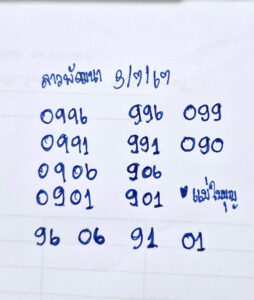 ลาวพัฒนา 3/7/67
0996 996 099
0991 991 090
0906 906
0901 901 ♥ แม่ใบบุญ
96 06 91 01